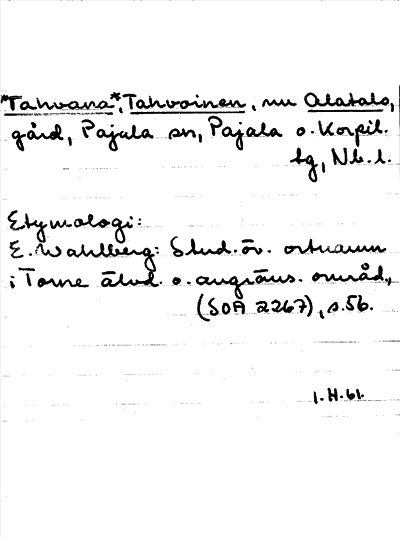 *Tahvana*, Tahvoinen, nu Alatalo,
gård, Pajala sn, Pajala o. Korpil.
tg, Nb. l.
Etymologi:
E. Wahlberg: Stud. öv. ortnamn
i Torne älvd. o. angräns. områd.,
(SOA 2267), s. 56.
I. H. 61.